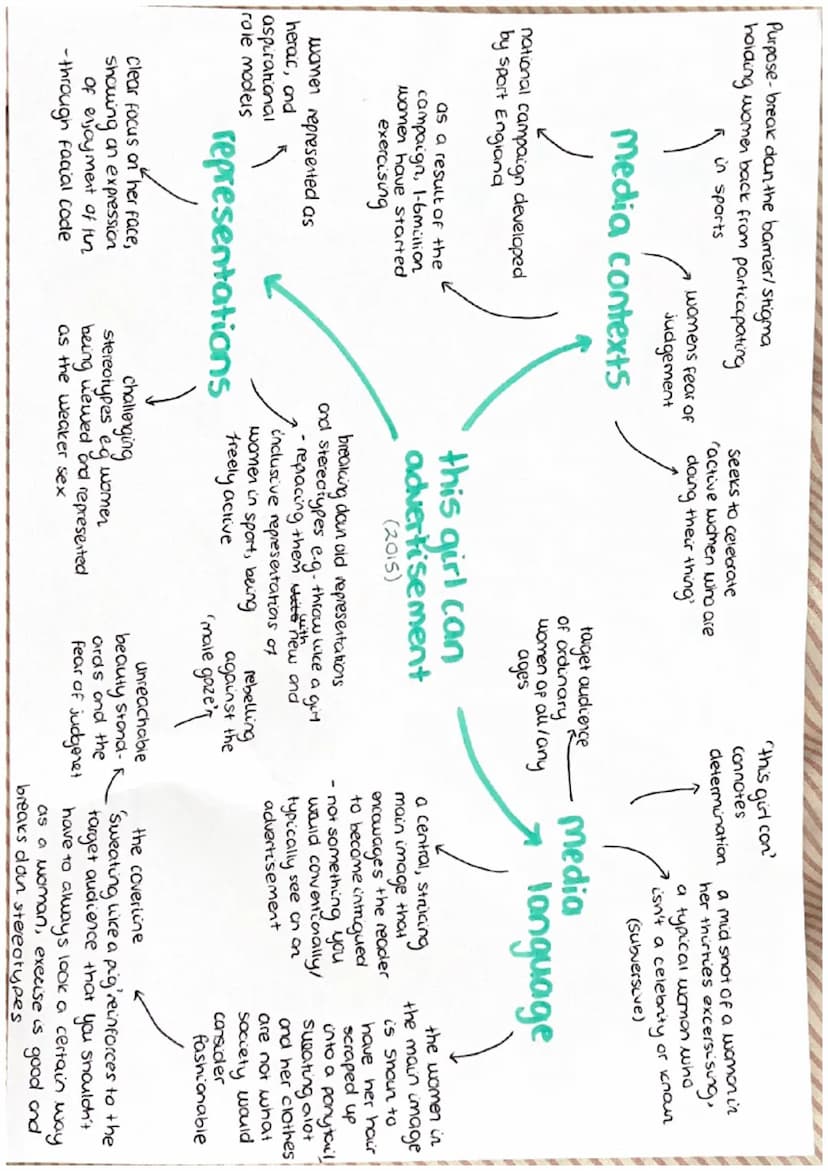 this girl can
advertisement
(2015)
media contexts
Purpose- break down the barrier/stigma
holding women back from participating
in sports
national campaign developed
by sport England
as a result of the
campaign, 1.6million
women have started
exercising
womens fear of
judgement
seeks to celebrate
'active women who are
doing their thing'
media
language
target audience
of ordinary
women of all/any
ages
'this girl can'
connotes
determination
a mid shot of a women in
her thirties excersising,
a typical women who
isn't a celebrity or known
(subversive)
a central, striking
main image that
encourages the reader
to become intrigued
- not something you
would conventionally/
typically see on an
advertisement
the women in
the main image
is shown to
have her hair
scraped up
into a ponytail,
sweating alot
and her clothes
are not what
society would
consider
fashionable
the coverline
'sweating like a pig' reinforces to the
target audience that you shouldn't
have to always look a certain way
as a woman, exercise is good and
breaks down stereotypes
unreachable
beauty stand-
ards and the
fear of judgement
representations
women represented as
heroic, and
aspirational
role models
clear focus on her face,
showing an expression
of enjoyment of fun
- through facial code
challenging
stereotypes e.g women
being viewed and represented
as the weaker sex
breaking down old representations
and stereotypes e.g- throw like a girl
- replacing them with new and
inclusive representations of
women in sport, being
freely active
rebelling
against the
'male gaze'